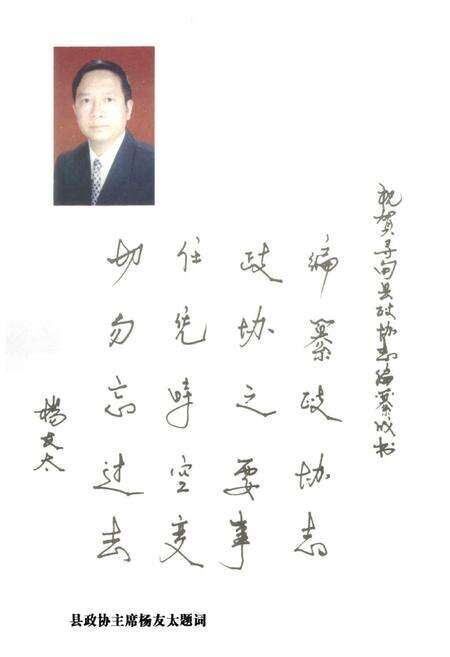 祝贺寻甸县政协志编纂成书
编纂政协志
政协之要事
任凭时空变
切勿忘过去
杨友太
县政协主席杨友太题词